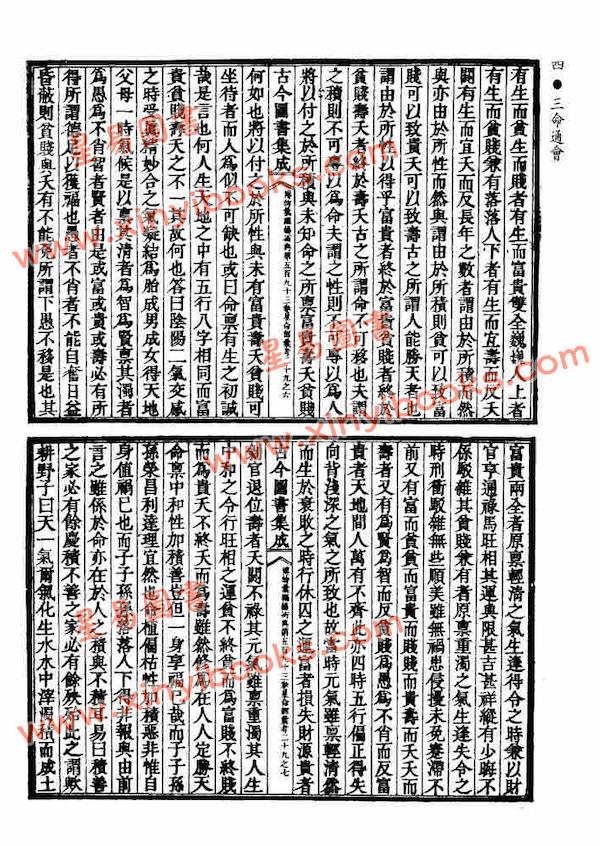 四●三命通會
有生而貧生而賤者有生而富貴雙全巍巍人上者
有生而貧賤兼有落落人下者有生而宜壽而反夭
闕有生而宜夭而反長年之數者謂由於所積而然
與亦由於所性而然與謂由於所積則貧可以致富
賤可以致貴夭可以致壽古之所謂人能勝天者也
謂由於所性以得乎富貴者終於富貴貧賤者終於
貧賤壽夭者終於壽夭古之所謂命不可移也夫謂
之積則不可專以為命夫謂之性則不可專以為人
將以付之於所積與未知命之所禀富貴壽夭貧賤
古今圖書集成
何如也將以付之於所性與未有富貴壽夭貧賤可
坐待者而人為似不可缺也或曰命禀有生之初誠
哉是言也何人生天地之中有五行八字相同而富
貴貧賤壽夭之不一其故何也答曰陰陽二氣交感
之時受真精妙合之氣凝結為胎成男成女得天地
父母一時氣候是以禀其清者為智為賢禀其濁者
為愚為不肖智者賢者由是或富或貴或壽必有所
得所謂德足以獲福也愚者不肖者不能自奮日益
昏蔽則貧賤與夭有不能免所謂下愚不移是也其
富貴兩全者原禀輕清之氣生逢得令之時兼以財
官亨通祿馬旺相其運與限甚吉甚祥縱有少晦不
係駁雜其貧賤兼有者原禀重濁之氣生逢失令之
時刑衝駁雜無些順美雖無禍患侵擾未免蹇滯不
前又有富而貧貧而富貴而賤賤而貴壽而夭夭而
壽者又有為賢為智而反貧賤為愚為不肖而反富
貴者天地間人萬有不齊此亦四時五行偏正得失
向背淺深之氣之所致也故當時元氣雖禀輕清然
而生於衰敗之時行休囚之運富者損失財源貴者
古今圖書集成
剝官退位壽者夭闕不祿其元氣雖禀重濁其人生
中和之令行旺相之運貧不終貧而為富賤不終賤
而為貴夭不終夭而為壽雖然修為在人人定勝天
命禀中和性加積善豈但一身享福已哉而子子孫
孫榮昌利達理宜然也命植偏枯性加積惡非惟自
身值禍已也而子子孫孫落落人下得非報與由前
言之雖係於命亦在於人之積與不積耳易曰積善
之家必有餘慶積不善之家必有餘殃殆此之謂歟
耕野子曰天一氣爾氣化生水水中滓濁積而成土